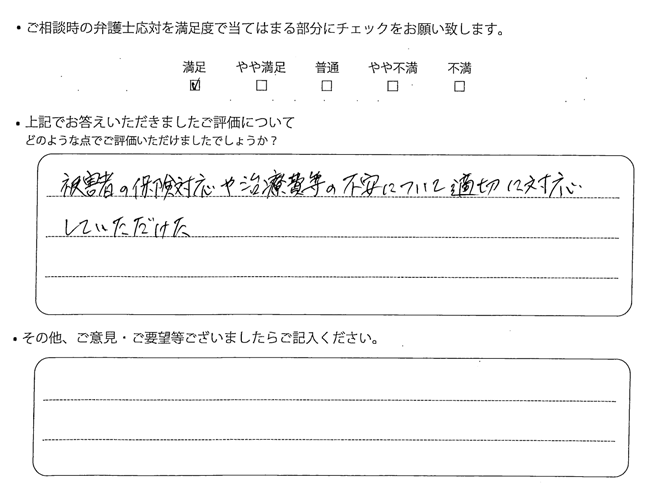 ・ご相談時の弁護士応対を満足度で当てはまる部分にチェックをお願い致します。
満足 やや満足 普通 やや不満 不満
☑ □ □ □ □
・上記でお答えいただきましたご評価について
どのような点でご評価いただけましたでしょうか？
被害者の保険対応や治療費等の不安について適切に対応
していただけた
・その他、ご意見・ご要望等ございましたらご記入ください。